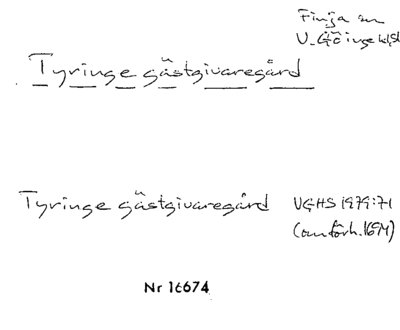 Finja sn
V. Göinge hd
Tyringe gästgivaregård
Tyringe gästgivaregård VGHS 1979:71
(om förh. 1691)
Nr 16674